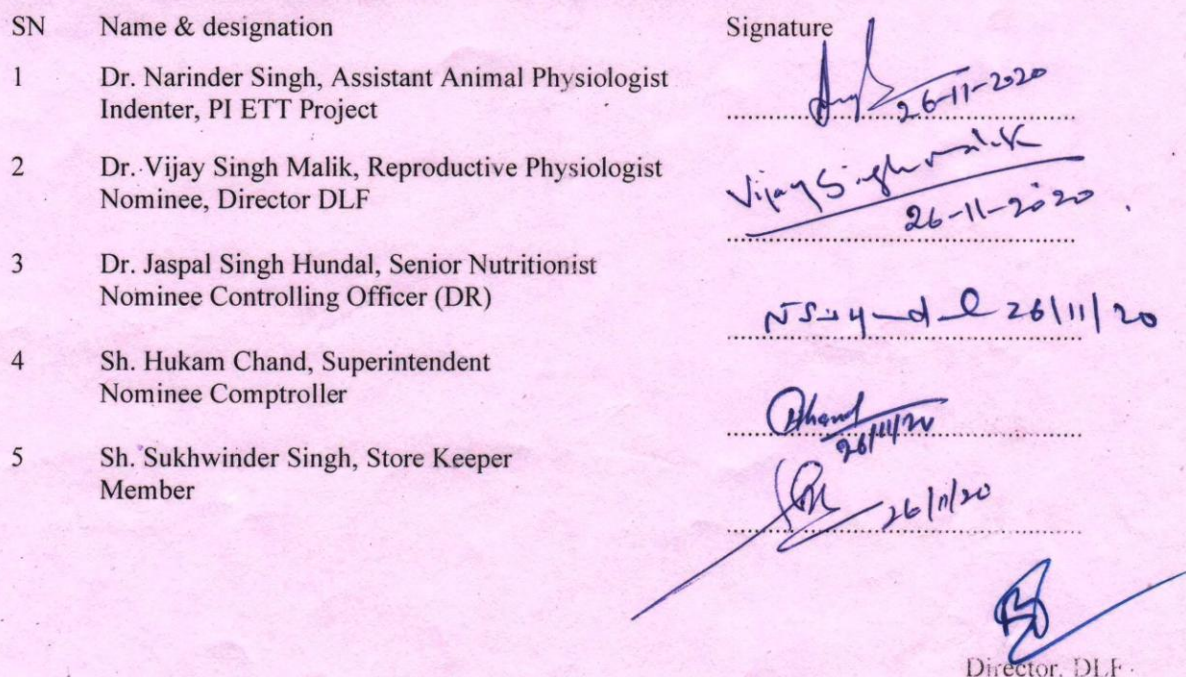 SN Name & designation Signature
1 Dr. Narinder Singh, Assistant Animal Physiologist
Indenter, PI ETT Project
26-11-2020
2 Dr. Vijay Singh Malik, Reproductive Physiologist
Nominee, Director DLF
Vijay Singh Malik
26-11-2020
3 Dr. Jaspal Singh Hundal, Senior Nutritionist
Nominee Controlling Officer (DR)
26/11/20
4 Sh. Hukam Chand, Superintendent
Nominee Comptroller
26/11/20
5 Sh. Sukhwinder Singh, Store Keeper
Member
26/11/20
Director, DLF